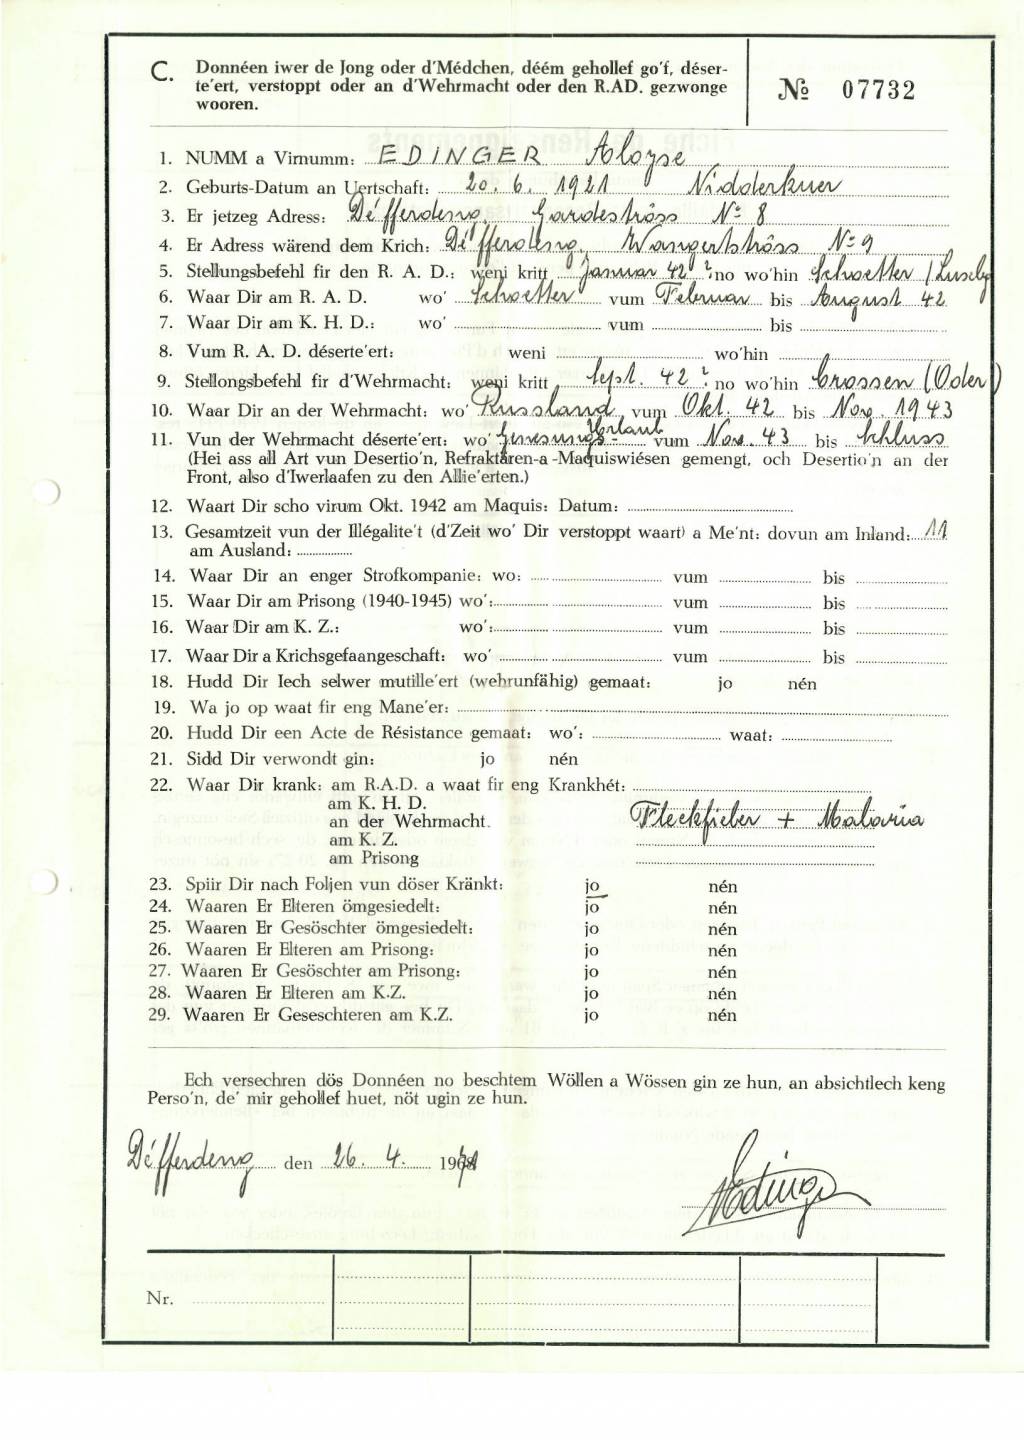 C. Donnéen iwer de Jong oder d'Médchen, déém gehollef go'f, déser-
te'ert, verstoppt oder an d'Wehrmacht oder den R.AD. gezwonge
wooren.
№ 07732
1. NUMM a Virnumm: EDINGER Aloyse
2. Geburts-Datum an Uertschaft: 20. 6. 1921 Nidderkuer
3. Er jetzeg Adress: Déifferdeng, Gardeströss No 8
4. Er Adress wärend dem Krich: Déifferdeng, Wangertströss No 9
5. Stellungsbefehl fir den R. A. D.: weni kritt Januar 42 ? no wo'hin Schroetter
6. Waar Dir am R. A. D. wo' Schroetter vum Februar bis August 42
7. Waar Dir am K. H. D.: wo' vum bis
8. Vum R. A. D. déserte'ert: weni wo'hin
9. Stellongsbefehl fir d'Wehrmacht: weni kritt Sept. 42 ? no wo'hin Crossen (Oder)
10. Waar Dir an der Wehrmacht: wo' Russland vum Okt. 42 bis Nov. 1943
11. Vun der Wehrmacht déserte'ert: wo' Genesungs-Urlaub vum Nov. 43 bis Schluss
(Hei ass all Art vun Desertio'n, Refraktären-a-Maquiswiésen gemengt, och Desertio'n an der
Front, also d'Iwerlaafen zu den Allie'erten.)
12. Waart Dir scho virum Okt. 1942 am Maquis: Datum:
13. Gesamtzeit vun der Illégalite't (d'Zeit wo' Dir verstoppt waart) a Me'nt: dovun am Inland: 11
am Ausland:
14. Waar Dir an enger Strofkompanie: wo: vum bis
15. Waar Dir am Prisong (1940-1945) wo': vum bis
16. Waar Dir am K. Z.: wo': vum bis
17. Waar Dir a Krichsgefaangeschaft: wo' vum bis
18. Hudd Dir Iech selwer mutille'ert (wehrunfähig) gemaat: jo nén
19. Wa jo op waat fir eng Mane'er:
20. Hudd Dir een Acte de Résistance gemaat: wo': waat:
21. Sidd Dir verwondt gin: jo nén
22. Waar Dir krank: am R.A.D. a waat fir eng Krankhét:
am K. H. D.
an der Wehrmacht. Fleckfieber + Malaria
am K. Z.
am Prisong
23. Spiir Dir nach Foljen vun döser Kränkt: jo nén
24. Waaren Er Elteren ömgesiedelt: jo nén
25. Waaren Er Gesöschter ömgesiedelt: jo nén
26. Waaren Er Elteren am Prisong: jo nén
27. Waaren Er Gesöschter am Prisong: jo nén
28. Waaren Er Elteren am K.Z. jo nén
29. Waaren Er Geseschteren am K.Z. jo nén
Ech versechren dös Donnéen no beschtem Wöllen a Wössen gin ze hun, an absichtlech keng
Perso'n, de' mir gehollef huet, nöt ugin ze hun.
Déifferdeng den 26. 4. 19
Nr.